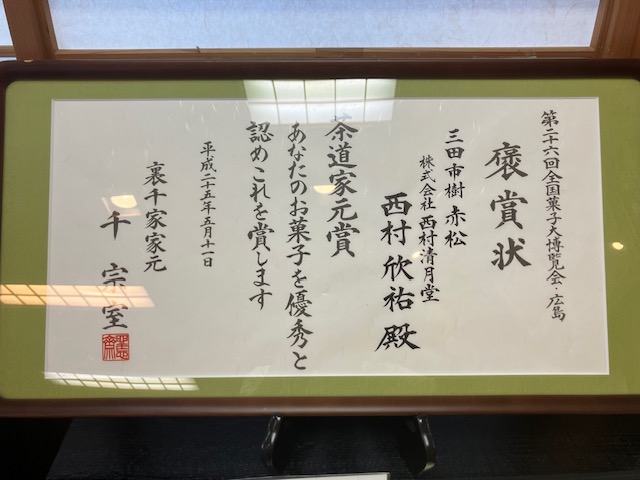 第二十六回全国菓子大博覧会・広島
褒賞状
三田市樹 赤松
株式会社 西村清月堂
西村欣祐殿
茶道家元賞
あなたのお菓子を優秀と
認めこれを賞します
平成二十五年五月十一日
裏千家家元
千宗室